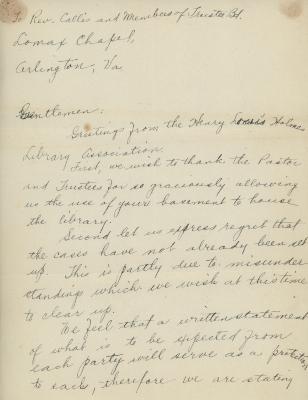 To Rev. Collis and Members of Trustee Bd.
Lomax Chapel,
Arlington, Va
Gentlemen:
Greetings from the Henry Louis Holmes
Library Association.
First, we wish to thank the Pastor
and Trustees for so graciously allowing
us the use of your basement to house
the library.
Second let us express regret that
the cases have not already been set
up. This is partly due to misunder
standings which we wish at this time
to clear up.
We feel that a written statement
of what is to be expected from
each party will serve as a protection
to each, therefore we are stating